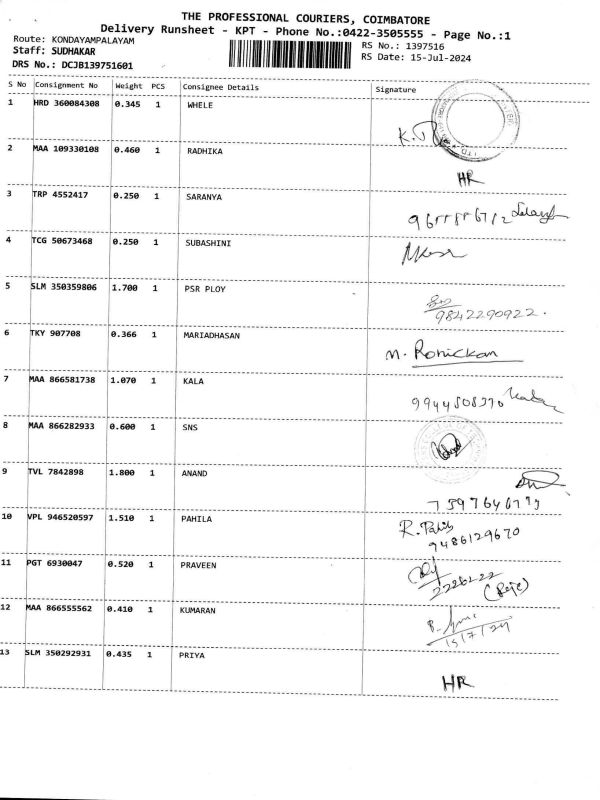 THE PROFESSIONAL COURIERS, COIMBATORE
Delivery Runsheet - KPT - Phone No.:0422-3505555 - Page No.:1
Route: KONDAYAMPALAYAM
RS No.: 1397516
Staff: SUDHAKAR
RS Date: 15-Jul-2024
DRS No.: DCJB139751601
S No Consignment No Weight PCS Consignee Details Signature
1 HRD 360084308 0.345 1 WHELE
2 MAA 109330108 0.460 1 RADHIKA HR
3 TRP 4552417 0.250 1 SARANYA
4 TCG 50673468 0.250 1 SUBASHINI
5 SLM 350359806 1.700 1 PSR PLOY
9842290922.
6 TKY 907708 0.366 1 MARIADHASAN
M. Ronickan
7 MAA 866581738 1.070 1 KALA
9944508370 Kala
8 MAA 866282933 0.600 1 SNS
9 TVL 7842898 1.800 1 ANAND
10 VPL 946520597 1.510 1 PAHILA R. Pahila
9486129670
11 PGT 6930047 0.520 1 PRAVEEN
2226222
12 MAA 866555562 0.410 1 KUMARAN
15/7/24
13 SLM 350292931 0.435 1 PRIYA
HR